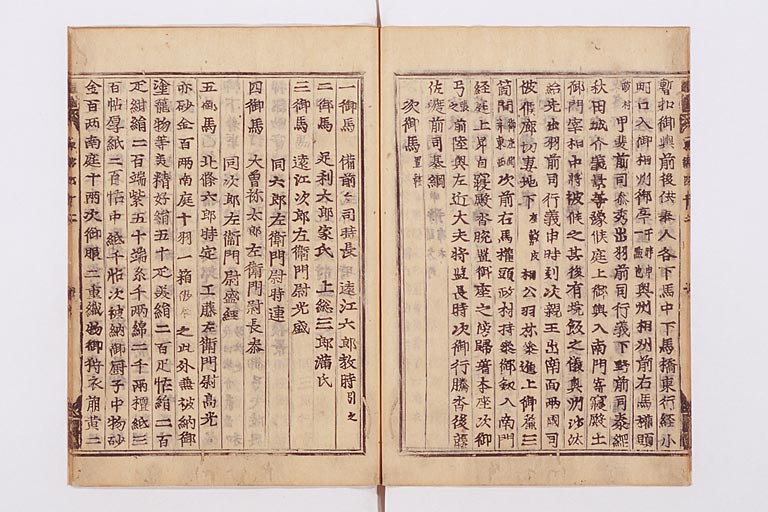 暫扣御輿前後供奉人各下馬中下馬橋東行経小
町口入御相州御亭于時申一點也奥州相州前右馬権頭
政村甲斐前司泰秀出羽前司行義下野前司泰綱
秋田城介義景等豫候庭上御輿入南門寄寝殿土
御門宰相中将被候之其後有垸飯之儀奥州沙汰
給先出羽前司行義申時刻次親王出南面両國司
被候廊切妻地下相公羽林参進上御簾三
箇間次前右馬権頭政村持参御釼入南門
経庭上昇自寝殿沓脱置御座之傍帰著本座次御
弓箭陸奥左近大夫将監長時次御行騰沓後藤
佐渡前司基綱
次御馬置鞍
一御馬 備前々司時長 遠江六郎教時引之
二御馬 足利太郎家氏 上総三郎満氏
三御馬 遠江次郎左衛門尉光盛
同六郎左衛門尉時連
四御馬 大曽祢太郎左衛門尉長泰
同次郎左衛門尉盛経
五御馬 北條六郎時定 工藤左衛門尉高光
亦砂金百両南庭十羽一箱之此外無被納御
塗籠物等美精好絹五十疋美絹二百疋帖絹二百
疋紺絹二百端紫五十端糸千両綿二千両檀紙三
百帖厚紙二百帖中紙千帖次被納御厨子中物砂
金百両南庭千両次御服二重織物御狩衣萠黄二